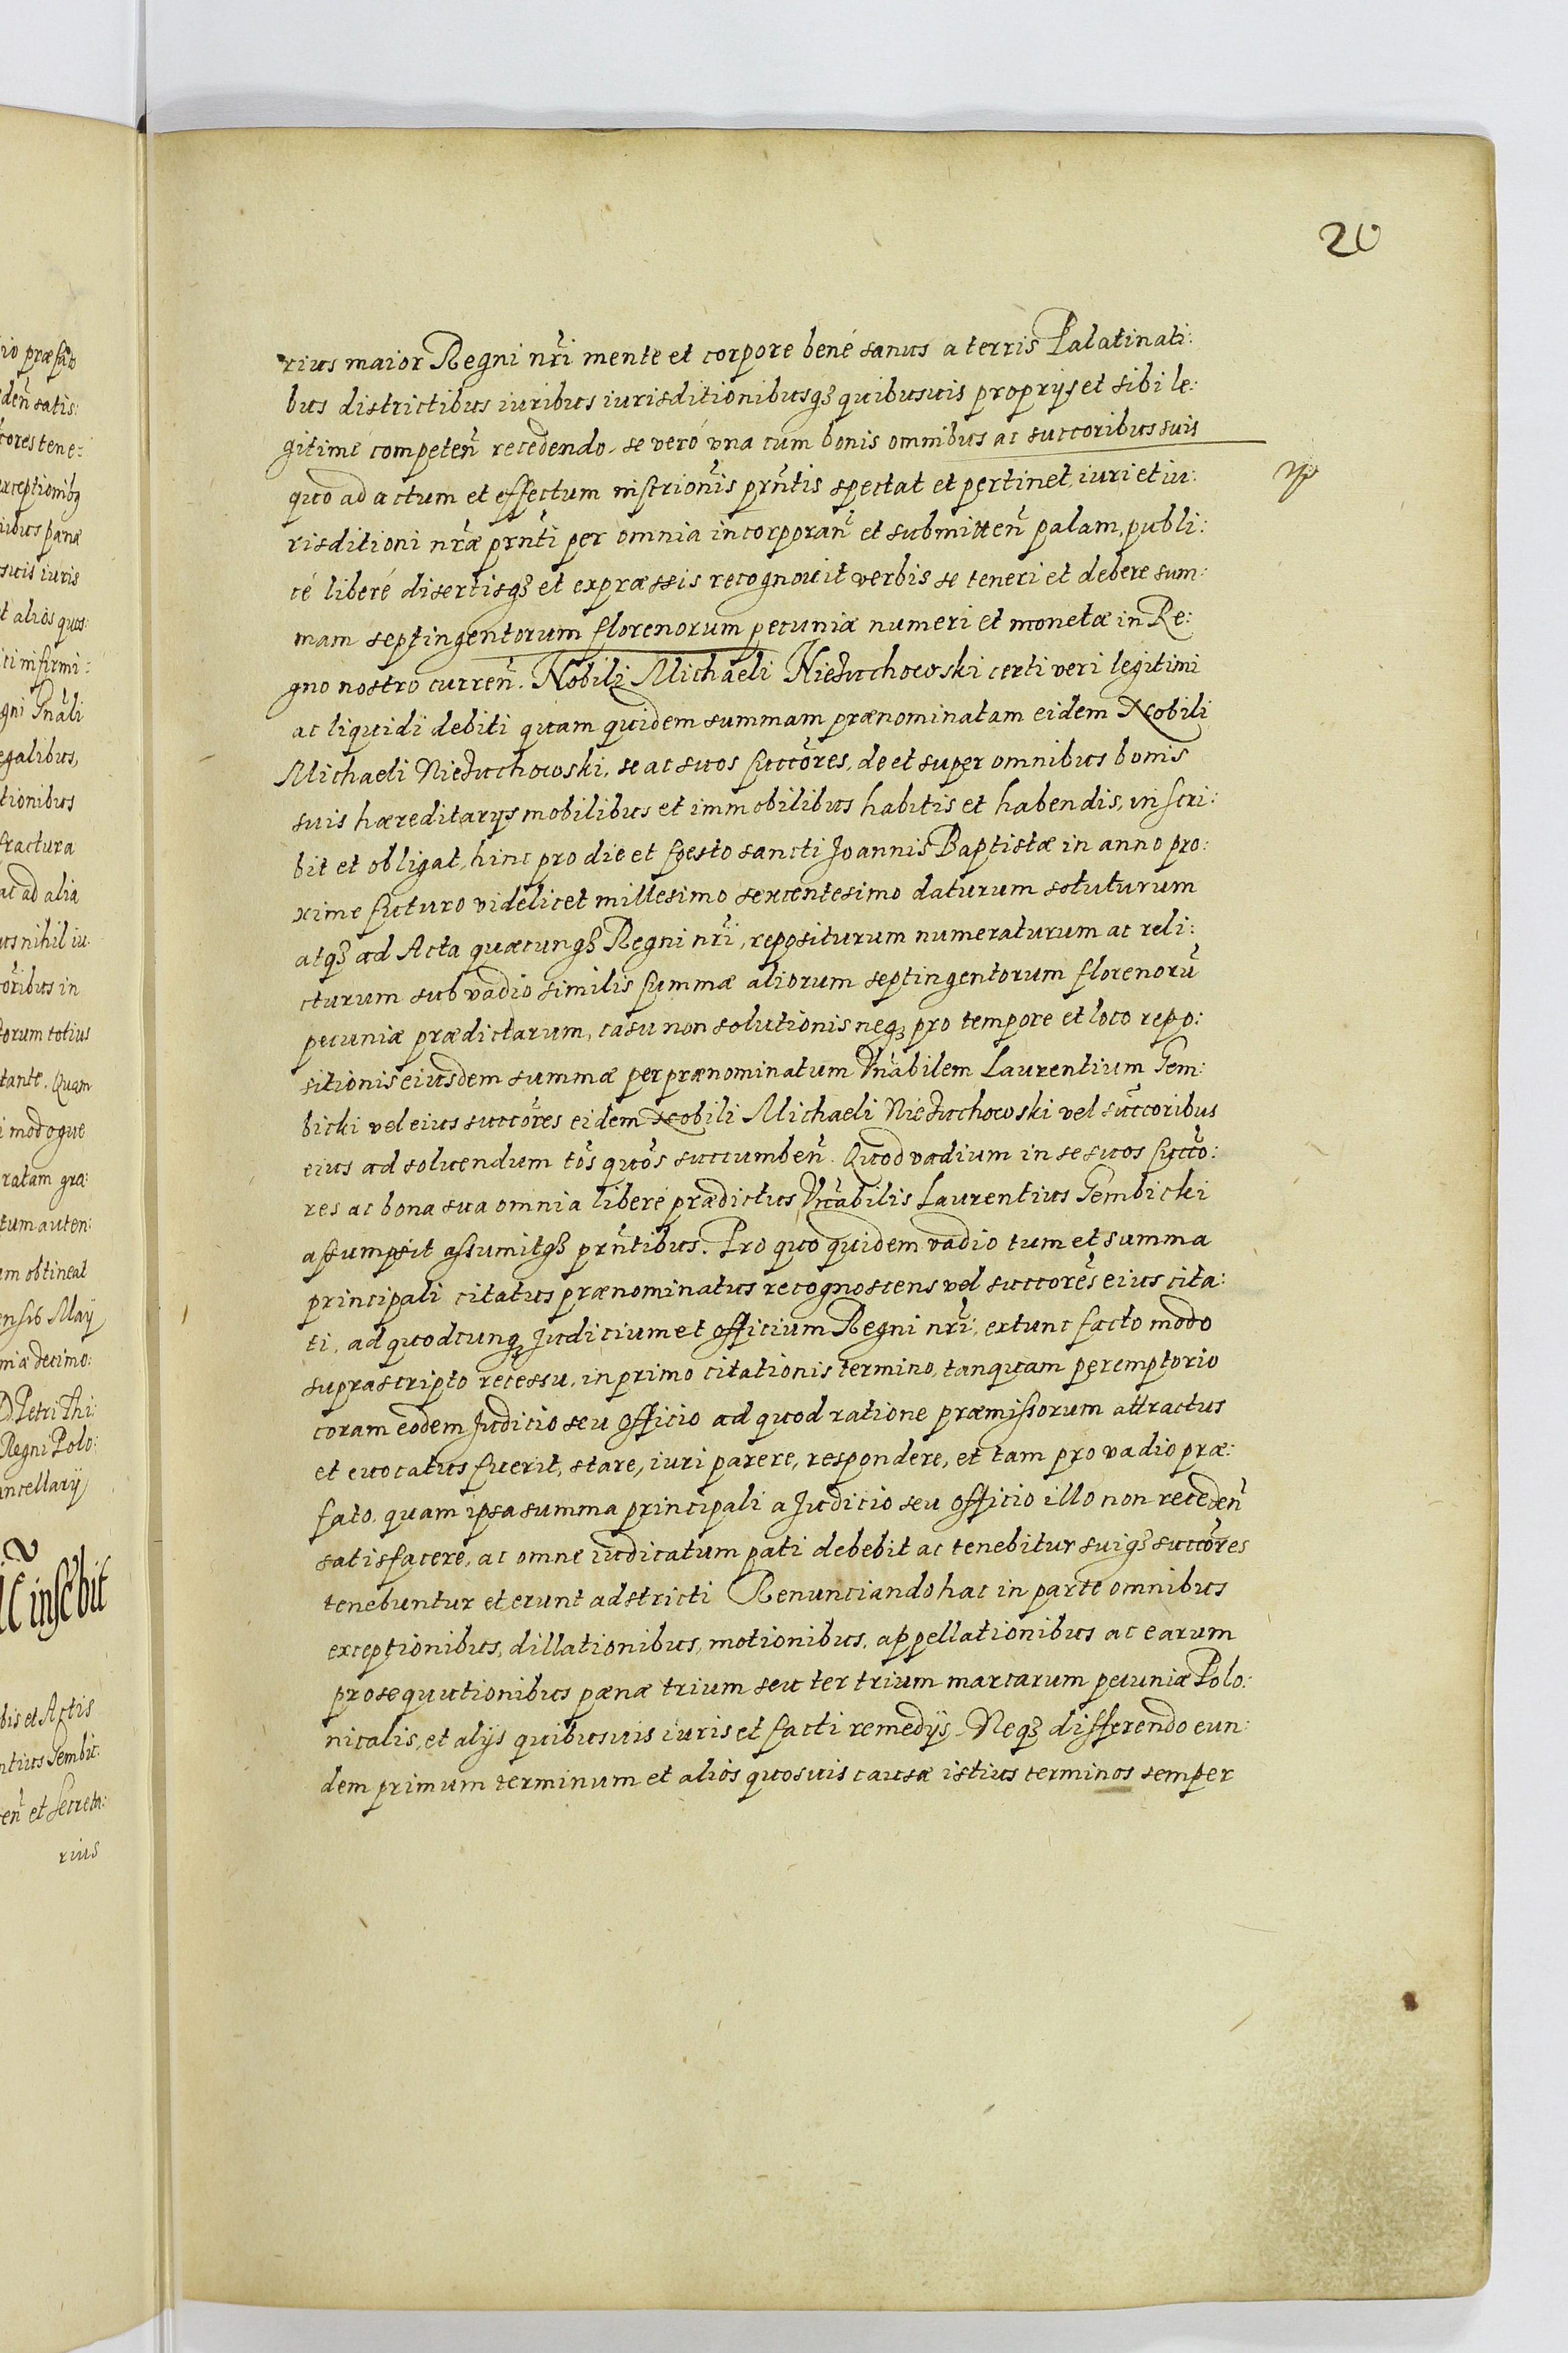 20
rius maior Regni nri mente et corpore bené sanus a terris Palatinati:
bus districtibus iuribus iurisditionibusq3 quibusuis proprijs et sibi le:
gitimé competen̄ recedendo. se veró vna cum bonis omnibus ac succoribus suis
quo ad actum et effectum inscrionis prntis spectat et pertinet, iuri et iu:
risditioni nræ prnti per omnia incorporan̄ et submitten̄ palam, publi:
cé liberé disertisq3 et expræssis recognouit verbis se teneri et debere sum:
mam septingentorum florenorum pecuniæ numeri et monetæ in Re:
gno nostro curren̄. Nobili Michaeli Nieżuchowski certi veri legitimi
ac liquidi debiti quam quidem summam prænominatam eidem Nobili
Michaeli Nieżuchowski, se ac suos succores, de et super omnibus bonis
suis hæreditarys mobilibus et immobilibus habitis et habendis, inscri:
bit et obligat, hinc pro die et festo sancti Joannis Baptistæ in anno pro:
xime futuro videlicet millesimo sexcentesimo daturum soluturum
atq3 ad Acta quæcunq3 Regni nri, repositurum numeraturum ac reli:
cturum sub vadio similis summæ aliorum septingentorum florenorū
pecuniæ prædictarum, casu non solutionis neq3 pro tempore et loco repo:
sitionis eiusdem summæ per prænominatum Vnabilem Laurentium Gem:
bicki vel eius succores eidem Nobili Michaeli Nieżuchowski vel succoribus
eius ad soluendum tos quos succumben̄. Quod vadium in se suos succo:
res ac bona sua omnia liberé prædictus Vnabilis Laurentius Gembicki
assumpsit assumitq3 prntibus. Pro quo quidem vadio tum et summa
principali citatus prænominatus recognoscens vel succores eius cita:
ti, ad quodcunq3 Judicium et officium Regni nri, extunc facto modo
suprascripto recessu, in primo citationis termino, tanquam peremptorio
coram eodem Judicio seu officio ad quod ratione præmissorum attractus
et euocatus fuerit, stare, iuri parere, respondere, et tam pro vadio præ:
fato, quam ipsa summa principali a Judicio seu officio illo non receden̄
satisfacere, ac omne iudicatum pati debebit ac tenebitur suiq3 succores
tenebuntur et erunt adstricti Renunciando hac in parte omnibus
exceptionibus, dillationibus, motionibus, appellationibus ac earum
prosequutionibus pænæ trium seu ter trium marcarum pecuniæ Polo:
nicalis, et alijs quibusuis iuris et facti remedijs. Neq3 differendo eun:
dem primum terminum et alios quosuis causæ istius terminos semper